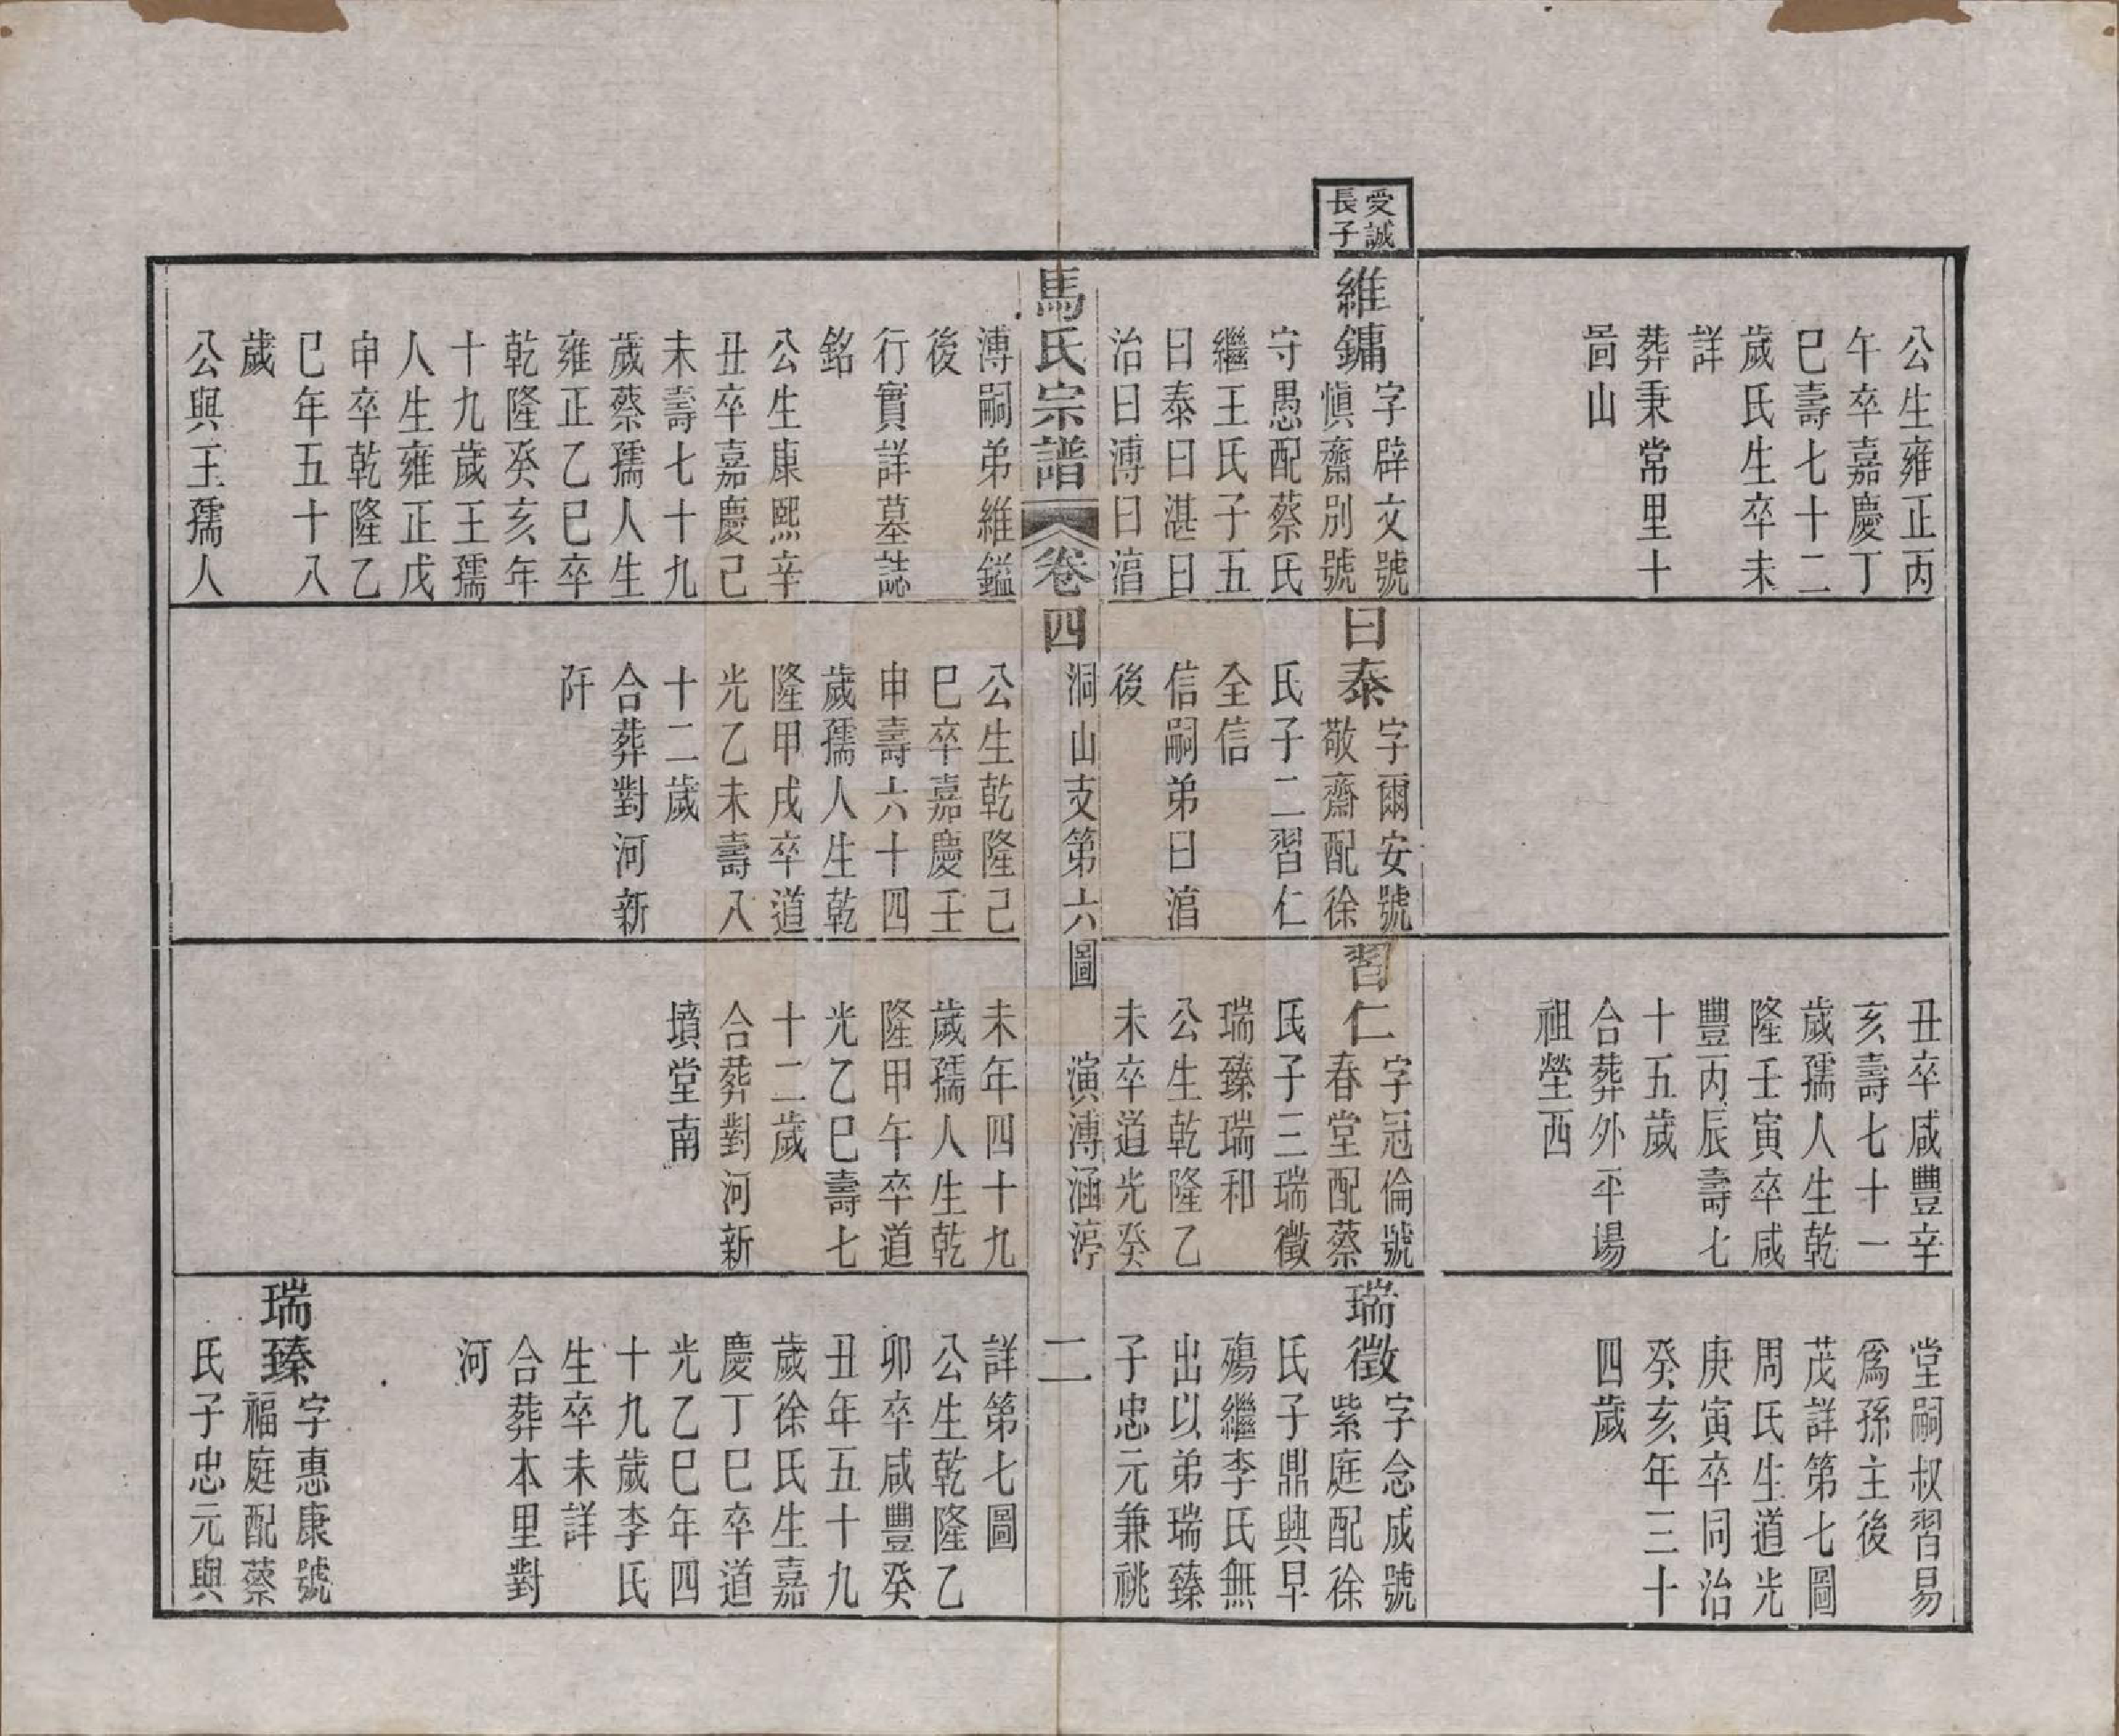 公生雍正丙
午卒嘉慶丁
巳壽七十二
歲氏生卒未
詳
葬秉常里十
啚山
丑卒咸豐辛
亥壽七十一
歲孺人生乾
隆壬寅卒咸
豐丙辰壽七
十五歲
合葬外平場
祖塋西
堂嗣叔習易
爲孫主後
茂詳第七圖
周氏生道光
庚寅卒同治
癸亥年三十
四歲
受誠
長子
維鏞
字辟文號
愼齋別號
守愚配蔡氏
繼王氏子五
曰泰曰湛曰
治曰溥曰湻
曰泰
字爾安號
敬齋配徐
氏子二習仁
全信
信嗣弟曰湻
後
習仁
字冠倫號
春堂配蔡
氏子三瑞徵
瑞臻瑞和
公生乾隆乙
未卒道光癸
瑞徵
字念成號
紫庭配徐
氏子鼎興早
殤繼李氏無
出以弟瑞臻
子忠元兼祧
馬氏宗譜
卷四
洞山支第六圖
演溥涵渟
二
溥嗣弟維鎰
後
行實詳墓誌
銘
公生康熙辛
丑卒嘉慶己
未壽七十九
歲蔡孺人生
雍正乙巳卒
乾隆癸亥年
十九歲王孺
人生雍正戊
申卒乾隆乙
巳年五十八
歲
公與王孺人
公生乾隆己
巳卒嘉慶壬
申壽六十四
歲孺人生乾
隆甲戌卒道
光乙未壽八
十二歲
合葬對河新
阡
未年四十九
歲孺人生乾
隆甲午卒道
光乙巳壽七
十二歲
合葬對河新
墳堂南
詳第七圖
公生乾隆乙
卯卒咸豐癸
丑年五十九
歲徐氏生嘉
慶丁巳卒道
光乙巳年四
十九歲李氏
生卒未詳
合葬本里對
河
瑞臻
字惠康號
福庭配蔡
氏子忠元與